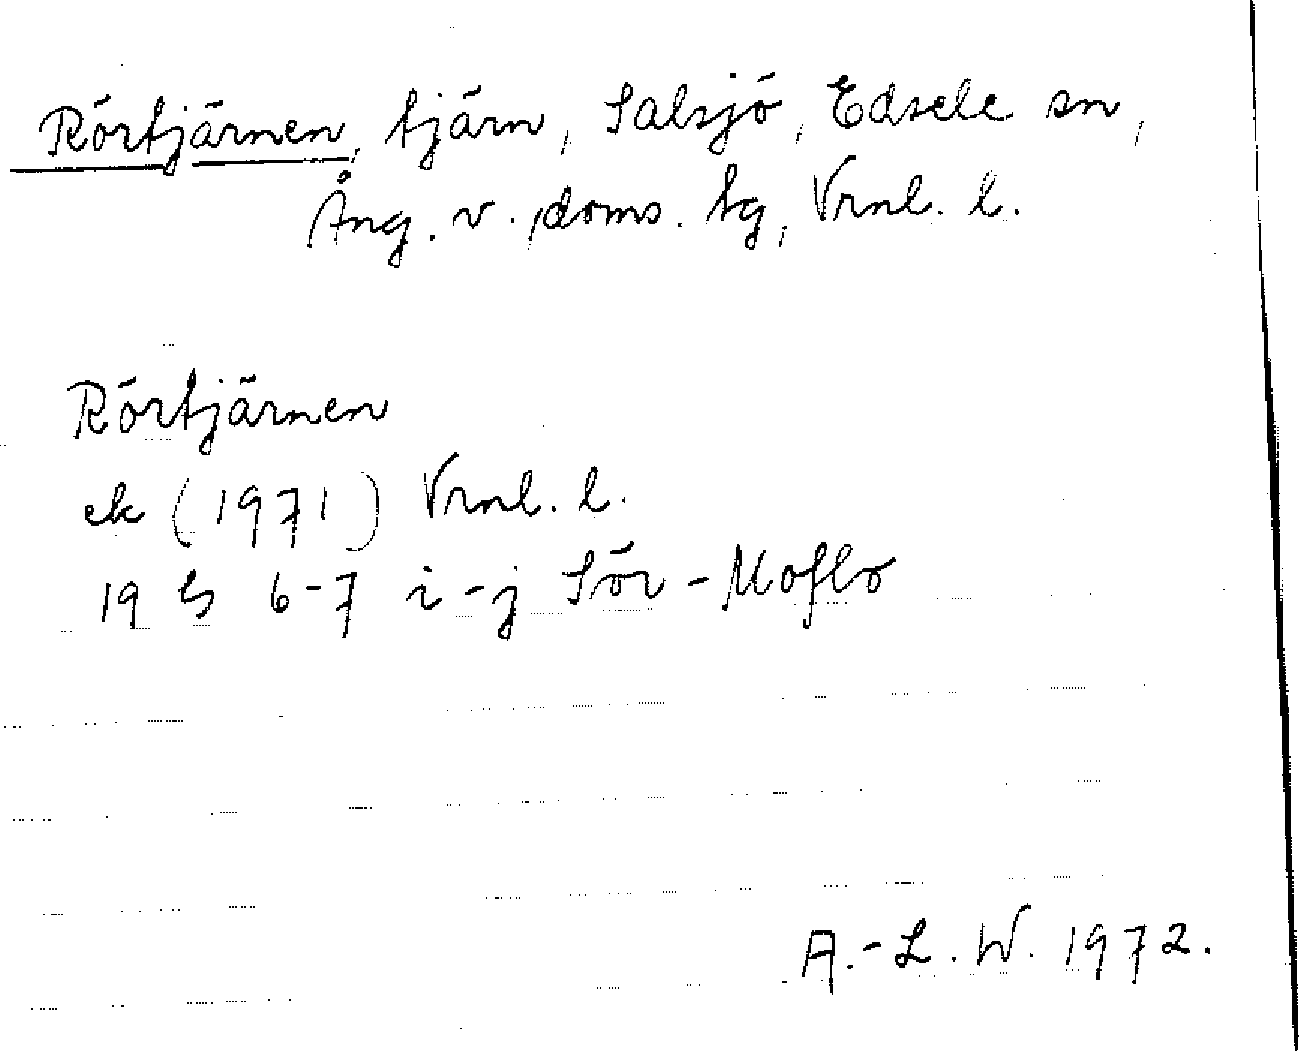 Rörtjärnen, tjärn, Salsjö, Edsele sn,
Ång. v. doms. tg, Vrnl. l.
Rörtjärnen
ek (1971) Vrnl. l.
19 G 6-7 i-j Sör-Moflo
A.-L. W. 1972.